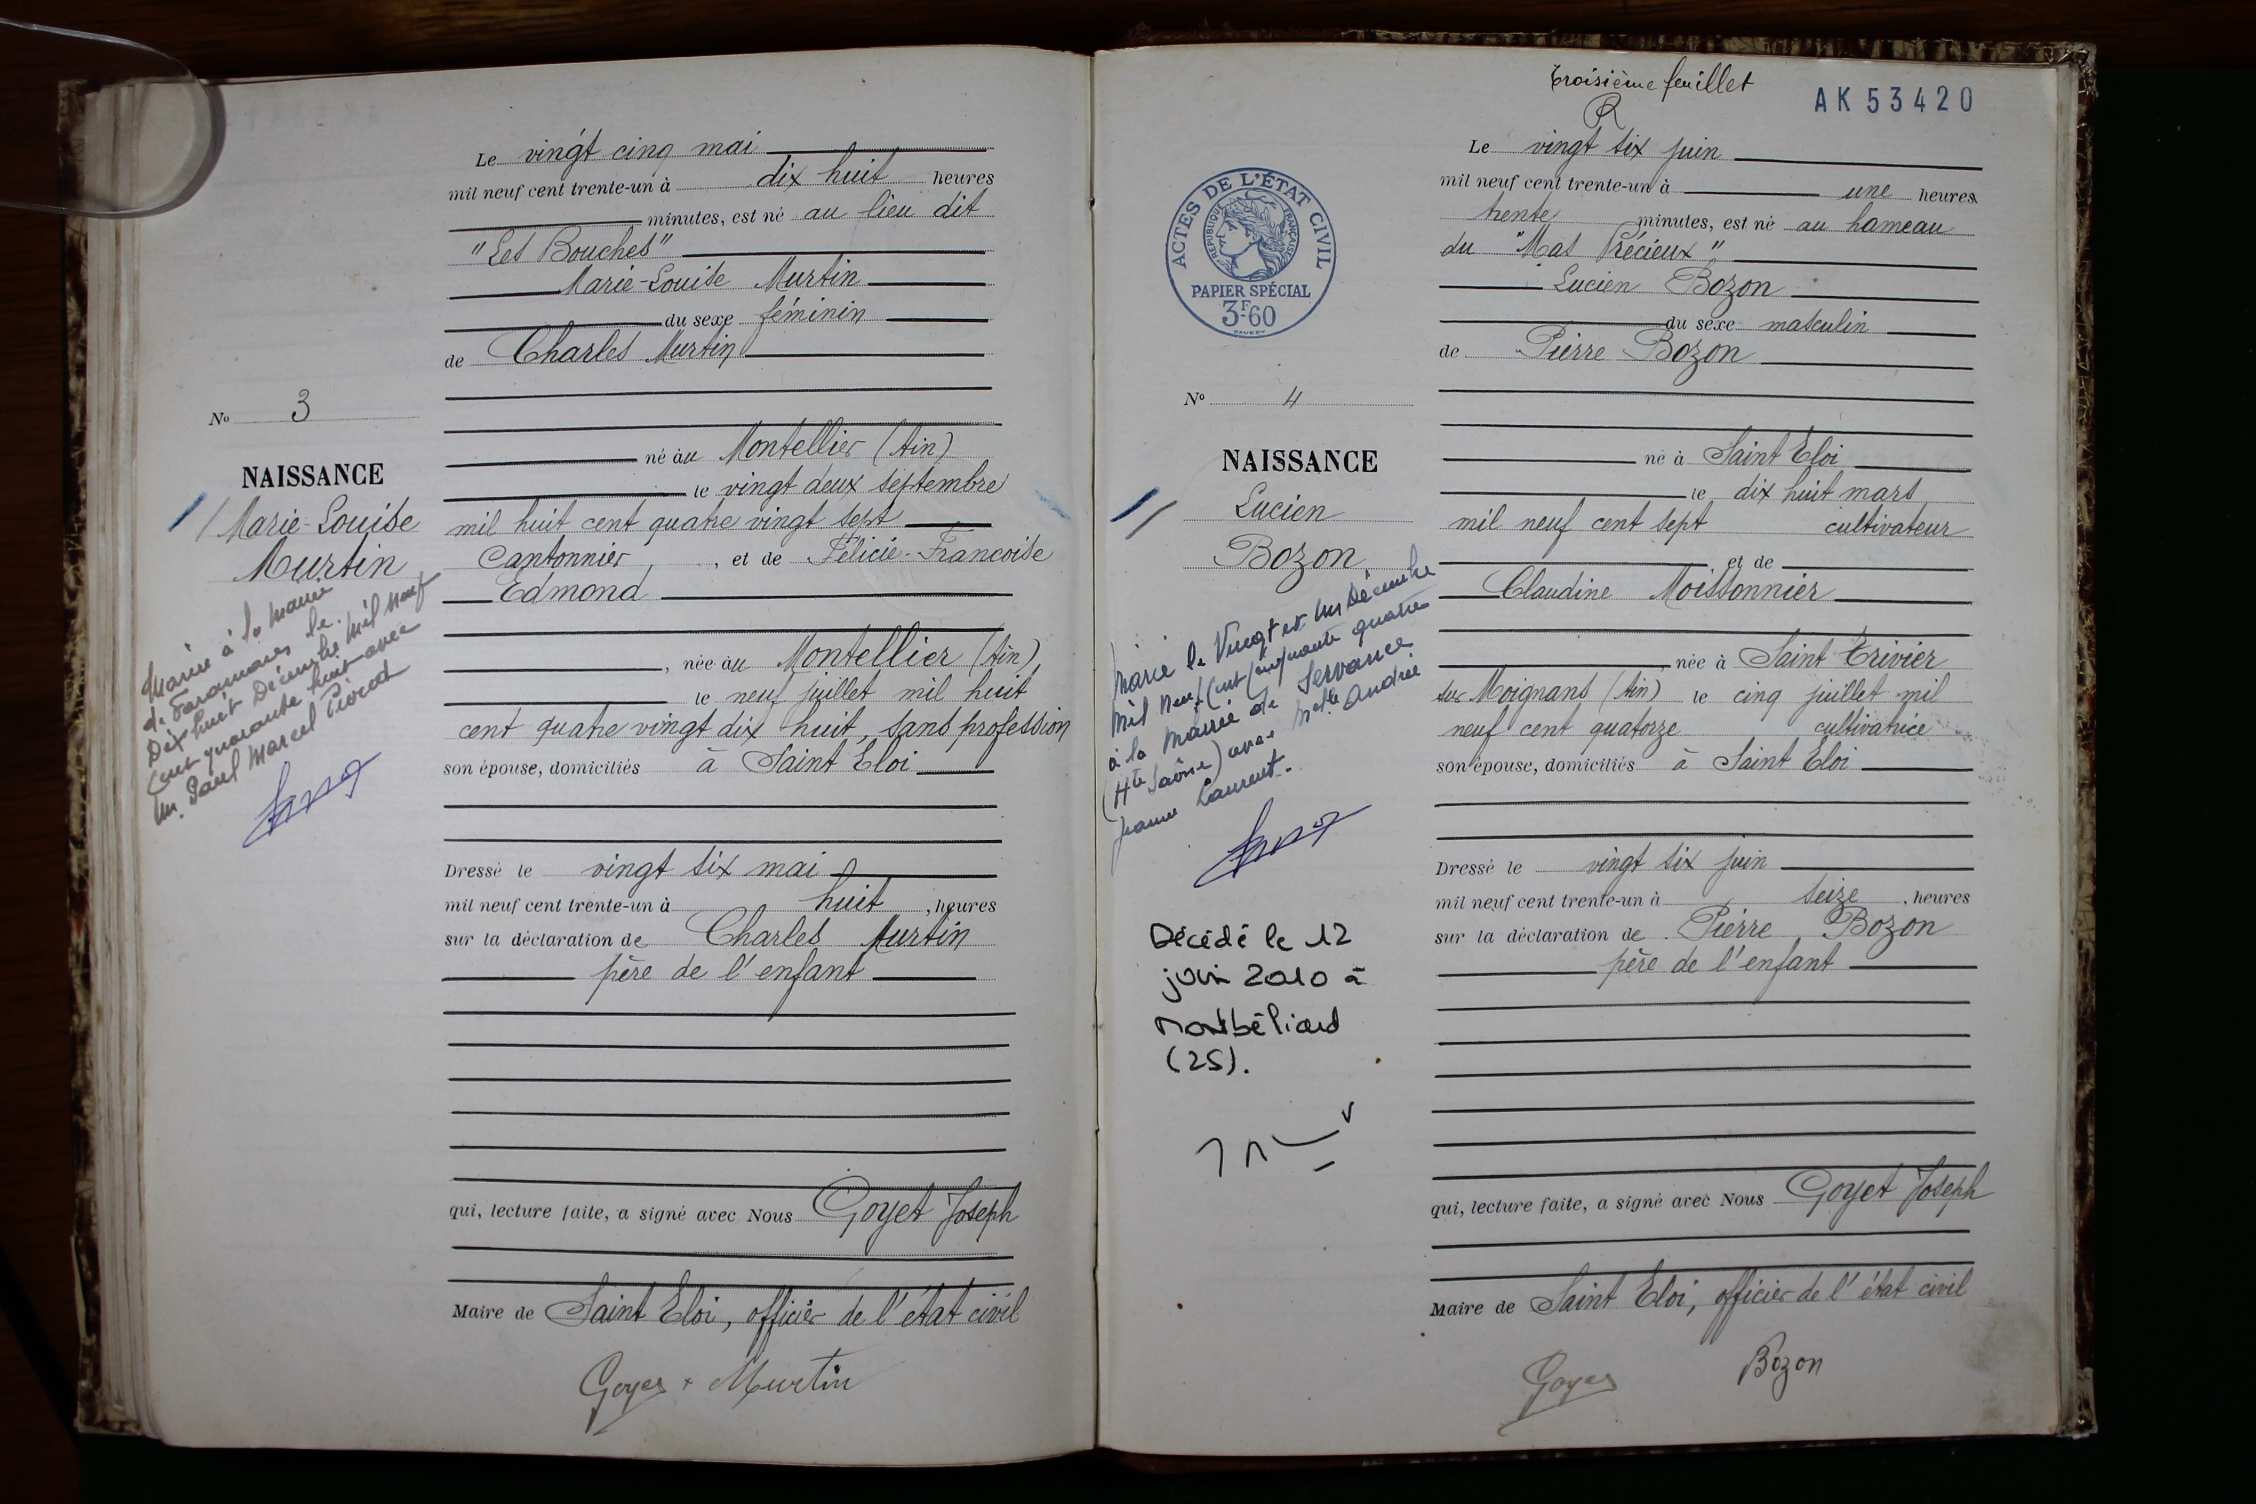 Le vingt cinq mai
mil neuf cent trente-un à dix huit heures
minutes, est né au lieu dit
"Les Bouches"
Marie-Louise Murtin
du sexe féminin
de Charles Murtin
né àu Montellier (Ain)
le vingt deux septembre
mil huit cent quatre vingt sept
Cantonnier, et de Félicie-Francoise
Edmond
, née àu Montellier (Ain),
le neuf juillet mil huit
cent quatre vingt dix huit, sans profession
son épouse, domiciliés à Saint Eloi
Dressé le vingt six mai
mil neuf cent trente-un à huit, heures
sur la déclaration de Charles Murtin
père de l'enfant
qui, lecture faite, a signé avec Nous Goyet Joseph
Maire de Saint Eloi, officier de l'état civil
Goyet Murtin
No 3
NAISSANCE
Marie-Louise
Murtin
Mariée à la Mairie
de Faramans le
Dix huit Décembre Mil Neuf
Cent quarante huit avec
Mr. Paul Marcel
troisième feuillet
AK 53420
ACTES DE L'ÉTAT CIVIL
RÉPUBLIQUE FRANÇAISE
PAPIER SPÉCIAL
3F60
Le vingt six juin
mil neuf cent trente-un à une heures
trente minutes, est né au hameau
du "Mas Précieux"
Lucien Bozon
du sexe masculin
de Pierre Bozon
né à Saint Eloi
le dix huit mars
mil neuf cent sept cultivateur
et de
Claudine Moissonnier
, née à Saint Trivier
sur Moignans (Ain) le cinq juillet mil
neuf cent quatorze cultivatrice
son épouse, domiciliés à Saint Eloi
Dressé le vingt six juin
mil neuf cent trente-un à seize, heures
sur la déclaration de Pierre Bozon
père de l'enfant
qui, lecture faite, a signé avec Nous Goyet Joseph
Maire de Saint Eloi, officier de l'état civil
Goyet Bozon
No 4
NAISSANCE
Lucien
Bozon
Marié le Vingt et Un Décembre
Mil Neuf Cent Cinquante quatre
à la Mairie de Servance
(Hte Saône) avec Melle Andrée
Jeanne Laurent.
Décédé le 12
juin 2010 à
Montbéliard
(25).